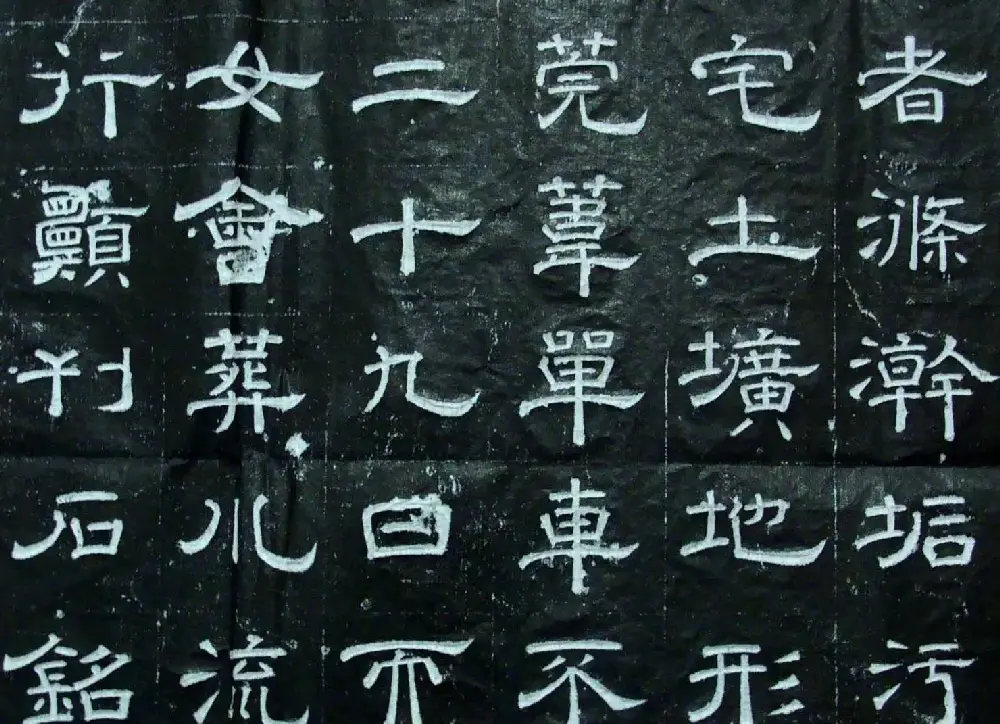 者滌澣垢污
宅土壙地形
莞葦單車不
二十九日而
女會葬川流
行顯刊石銘